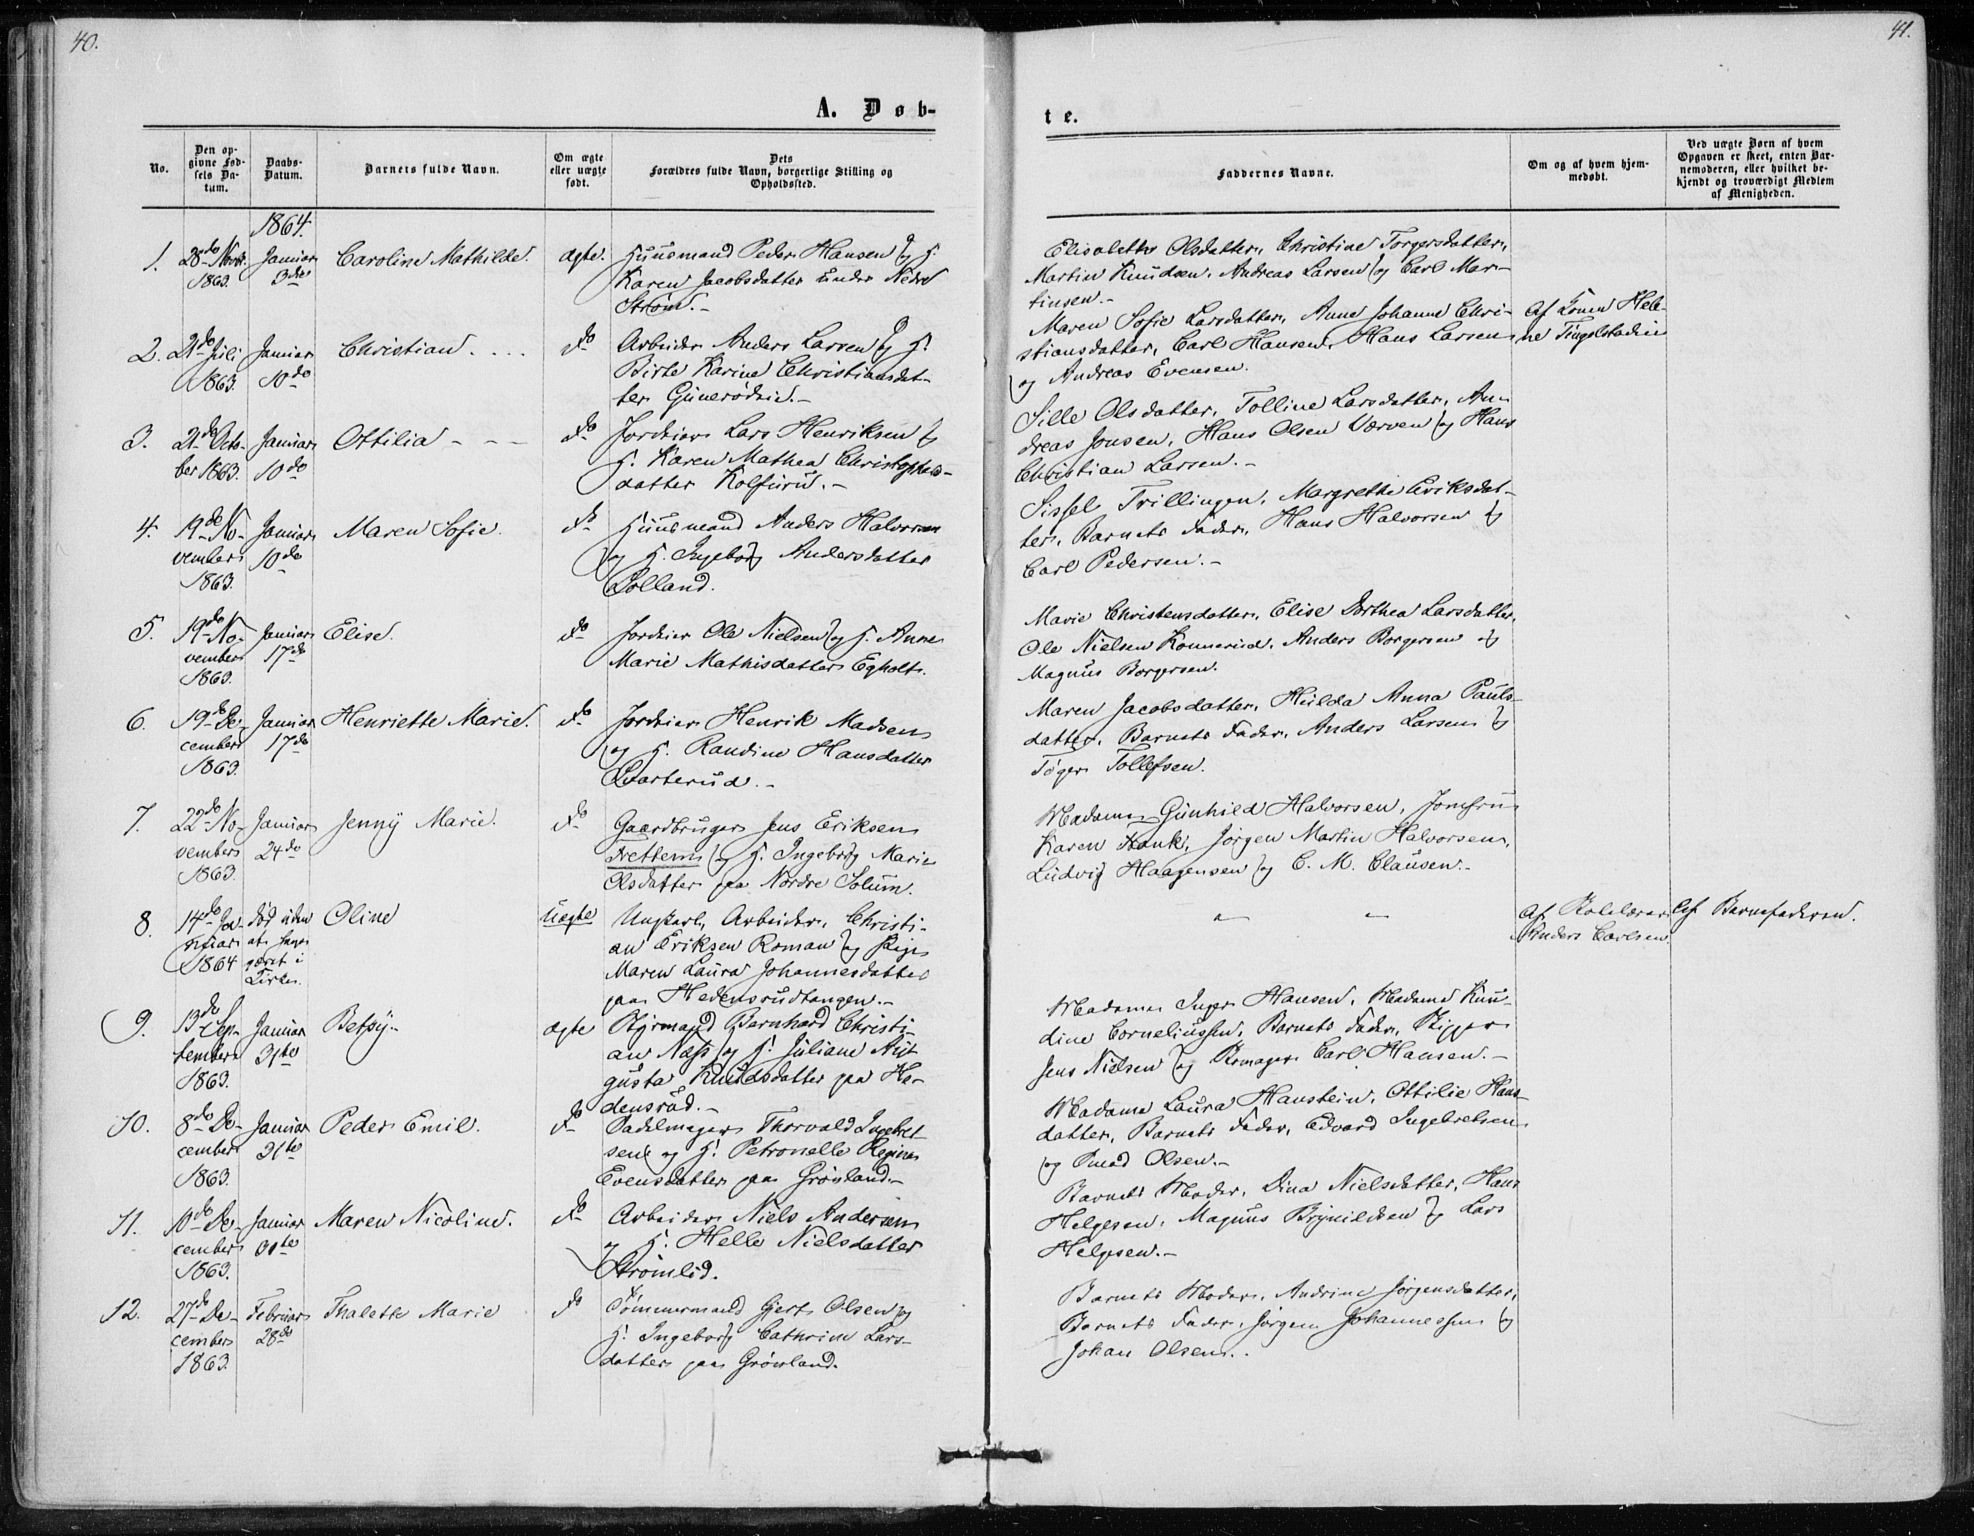 40.
41.
A. Døb-
te.
No.
Den op-
givne Fød-
sels Da-
tum.
Daabs-
Datum.
Barnets fulde Navn.
Om ægte
eller uægte
født.
Dets
Forældres fulde Navn, borgerlige Stilling og
Opholdssted.
Faddernes Navne.
Om og af hvem hjem-
medøbt.
Ved uægte Børn af hvem
Opgaven er skeet, enten Bar-
nemoderen, eller hvilket be-
kjendt og troværdigt Medlem
af Menigheden.
1864.
1.
28de Novb.
1863.
Januar
3die
Caroline Mathilde.
ægte.
Huusmand Peder Hansen og H.
Karen Jacobsdatter under Nedre
Strøm.-
Elisabeth Olsdatter, Christine Torgersdatter,
Martin Knudsen, Andreas Larsen og Carl Mar-
tinsen.-
2.
21de Juli
1863.
Januar
10de
Christian. . . .
do
Arbeider Anders Larsen og H.
Birte Karine Christiansdat-
ter Gunerødeie.-
Maren Sofie Larsdatter, Anne Johanne Chri-
stiansdatter, Carl Hansen, Hans Larsen
og Andreas Evensen.
Af Konen Hele-
ne Tingelstadeie
3.
21de Octo-
ber 1863.
Januar
10de
Ottilia - - -
do
Jordeier Lars Henriksen og
H. Karen Mathea Christophers-
datter Kolfurud.-
Sille Olsdatter, Tolline Larsdatter, An-
dreas Jonsen, Hans Olsen Værven og Hans
Christian Larsen.-
4.
19de No-
vember
1863.
Januar
10de
Maren Sofie.
do
Huusmand Anders Halvorsen
og H. Ingeborg Andersdatter
Lolland.
Sissel Trillingen, Margrethe Eriksdat-
ter, Barnets Fader, Hans Halvorsen og
Carl Pedersen.-
5.
19de No-
vember
1863.
Januar
17de
Elise.
do
Jordeier Ole Nielsen og H. Anne
Marie Mathisdatter Egholt.
Marie Christensdatter, Elise Dorthea Larsdatter,
Ole Nielsen Konnerud, Anders Borgersen og
Magnus Borgersen.
6.
19de De-
cember
1863.
Januar
17de
Henriette Marie.
do
Jordeier Henrik Madsen
og H. Randine Hansdatter
Svarterud.-
Maren Jacobsdatter, Hulda Anna Pauls-
datter, Barnets Fader, Anders Larsen og
Tøger Tollefsen.
7.
22de No-
vember
1863.
Januar
24de
Jenny Marie.
do
Gaardbruger Jens Eriksen
Tretterns og H. Ingeborg Marie
Olsdatter paa Nordre Solum.
Madame Gunhild Halvorsen, Jomfru
Karen Fonk, Jørgen Martin Halvorsen,
Ludvig Haagensen og C. M. Clausen.-
8.
14de Ja-
nuar
1864
død uden
at have
været i
Kirke.
Oline
Uægte
Ungkarl, Arbeider, Christi-
an Eriksen Roman og Pige
Maren Laura Johannesdatter
paa Hedensrudtangen.-
Af Skolelærer
Anders Carlsen
Af Barnefaderen.
9.
13de Sep-
tember
1863.
Januar
31te
Betsy.-
ægte
Styrmand Bernhard Christi-
an Næss og H. Juliane Aug-
gusta Knudsdatter paa He-
densrud.-
Madame Inger Hansen, Madame Knu-
dine Corneliussen, Barnets Fader, Skipper
Jens Nielsen og Remager Carl Hansen.-
10.
8de De-
cember
1863.
Januar
31te
Peder Emil.
do
Sadelmager Thorvald Ingebret-
sen og H. Petronelle Regine
Evensdatter paa Grønland.-
Madame Laura Hanstein, Ottilie Hans-
datter, Barnets Fader, Edvard Ingebretsen
og Smed Olsen.-
11.
10de De-
cember
1863.
Januar
31te
Maren Nicoline.
do
Arbeider Niels Andersen
og H. Helle Nielsdatter
Strømlid.
Barnets Moder, Dina Nielsdatter, Hans
Helgesen, Magnus Brynildsen og Lars
Helgesen.-
12.
27de De-
cember
1863.
Februar
28de
Thalette Marie
do
Tømmermand Gjert Olsen og
H. Ingeborg Cathrine Lars-
datter paa Grønland.
Barnets Moder, Andrine Jørgensdatter,
Barnets Fader, Jørgen Johannessen og
Johan Olsen.